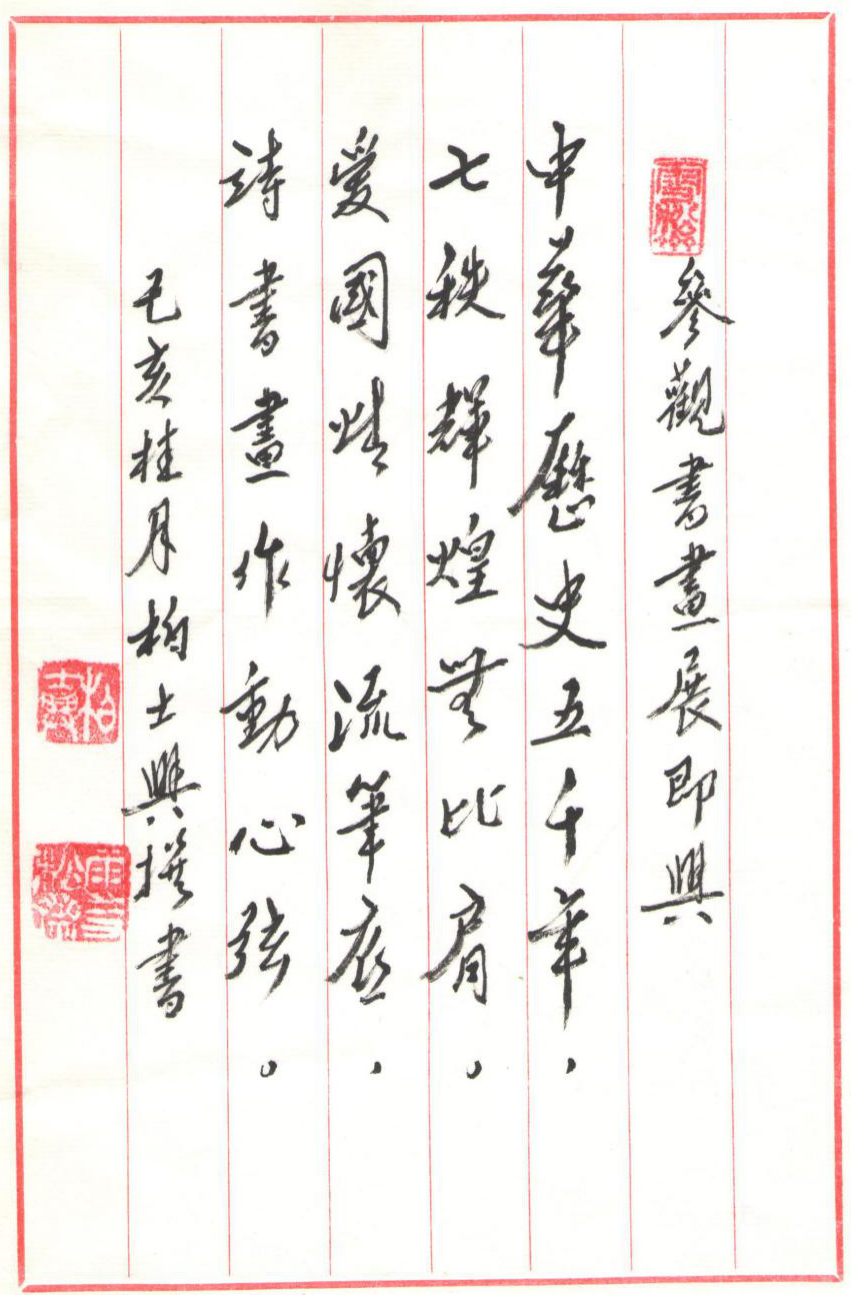 參觀書畫展即興
中華歷史五千年，
七秩輝煌無比肩。
愛國情懷流筆底，
詩書畫作動心弦。
己亥桂月柏士興撰書
柏士興